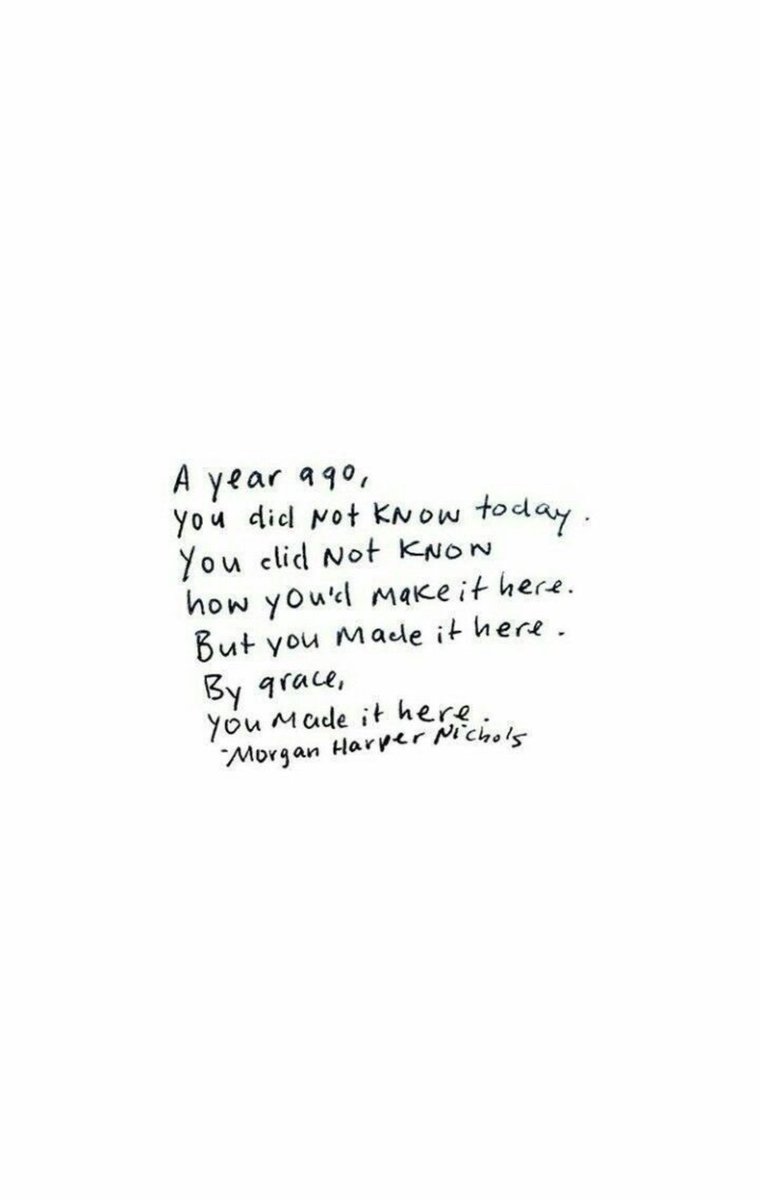 A year ago,
you did not know today.
You did not know
how you'd make it here.
But you made it here.
By grace,
you made it here.
-Morgan Harper Nichols